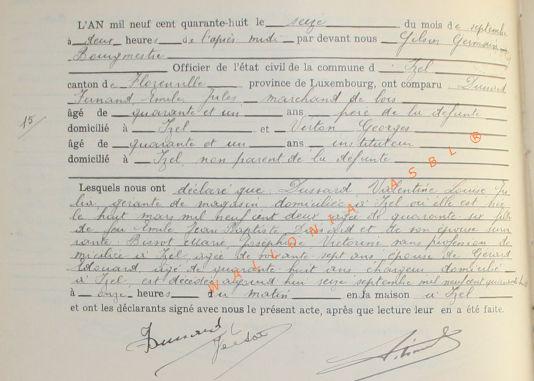 L'AN mil neuf cent quarante-huit le seize du mois de septembre
à deux heures de l'après midi par devant nous Gilson Germain
Bourgmestre
Officier de l'état civil de la commune d' Izel
canton de Florenville province de Luxembourg, ont comparu Dussard
Fernand Emile Jules marchand de bois
âgé de quarante et un ans père de la défunte
domicilié à Izel et Georges
15
âgé de quarante et un ans instituteur
domicilié à Izel, non parent de la défunte
Lesquels nous ont déclaré que Dussard, Valentine Louise Ju-
lia, gérante de magasin domiciliée à Izel où elle est née
le huit mars mil neuf cent deux âgée de quarante six fille
de feu Emile Jean Baptiste Dussard et de son épouse survi
vante Marie Josephine Victorine sans profession do
miciliée à Izel, âgée de soixante sept ans, épouse de Gérard
Edouard, âgé de quarante huit ans, chargeur domicilié
à Izel, est décédée aujourd'hui seize septembre mil neuf cent quarante huit
à onze heures du matin en la maison à Izel
et ont les déclarants signé avec nous le présent acte, après que lecture leur en a été faite.
WALLONIA ASBL ®
Dussard